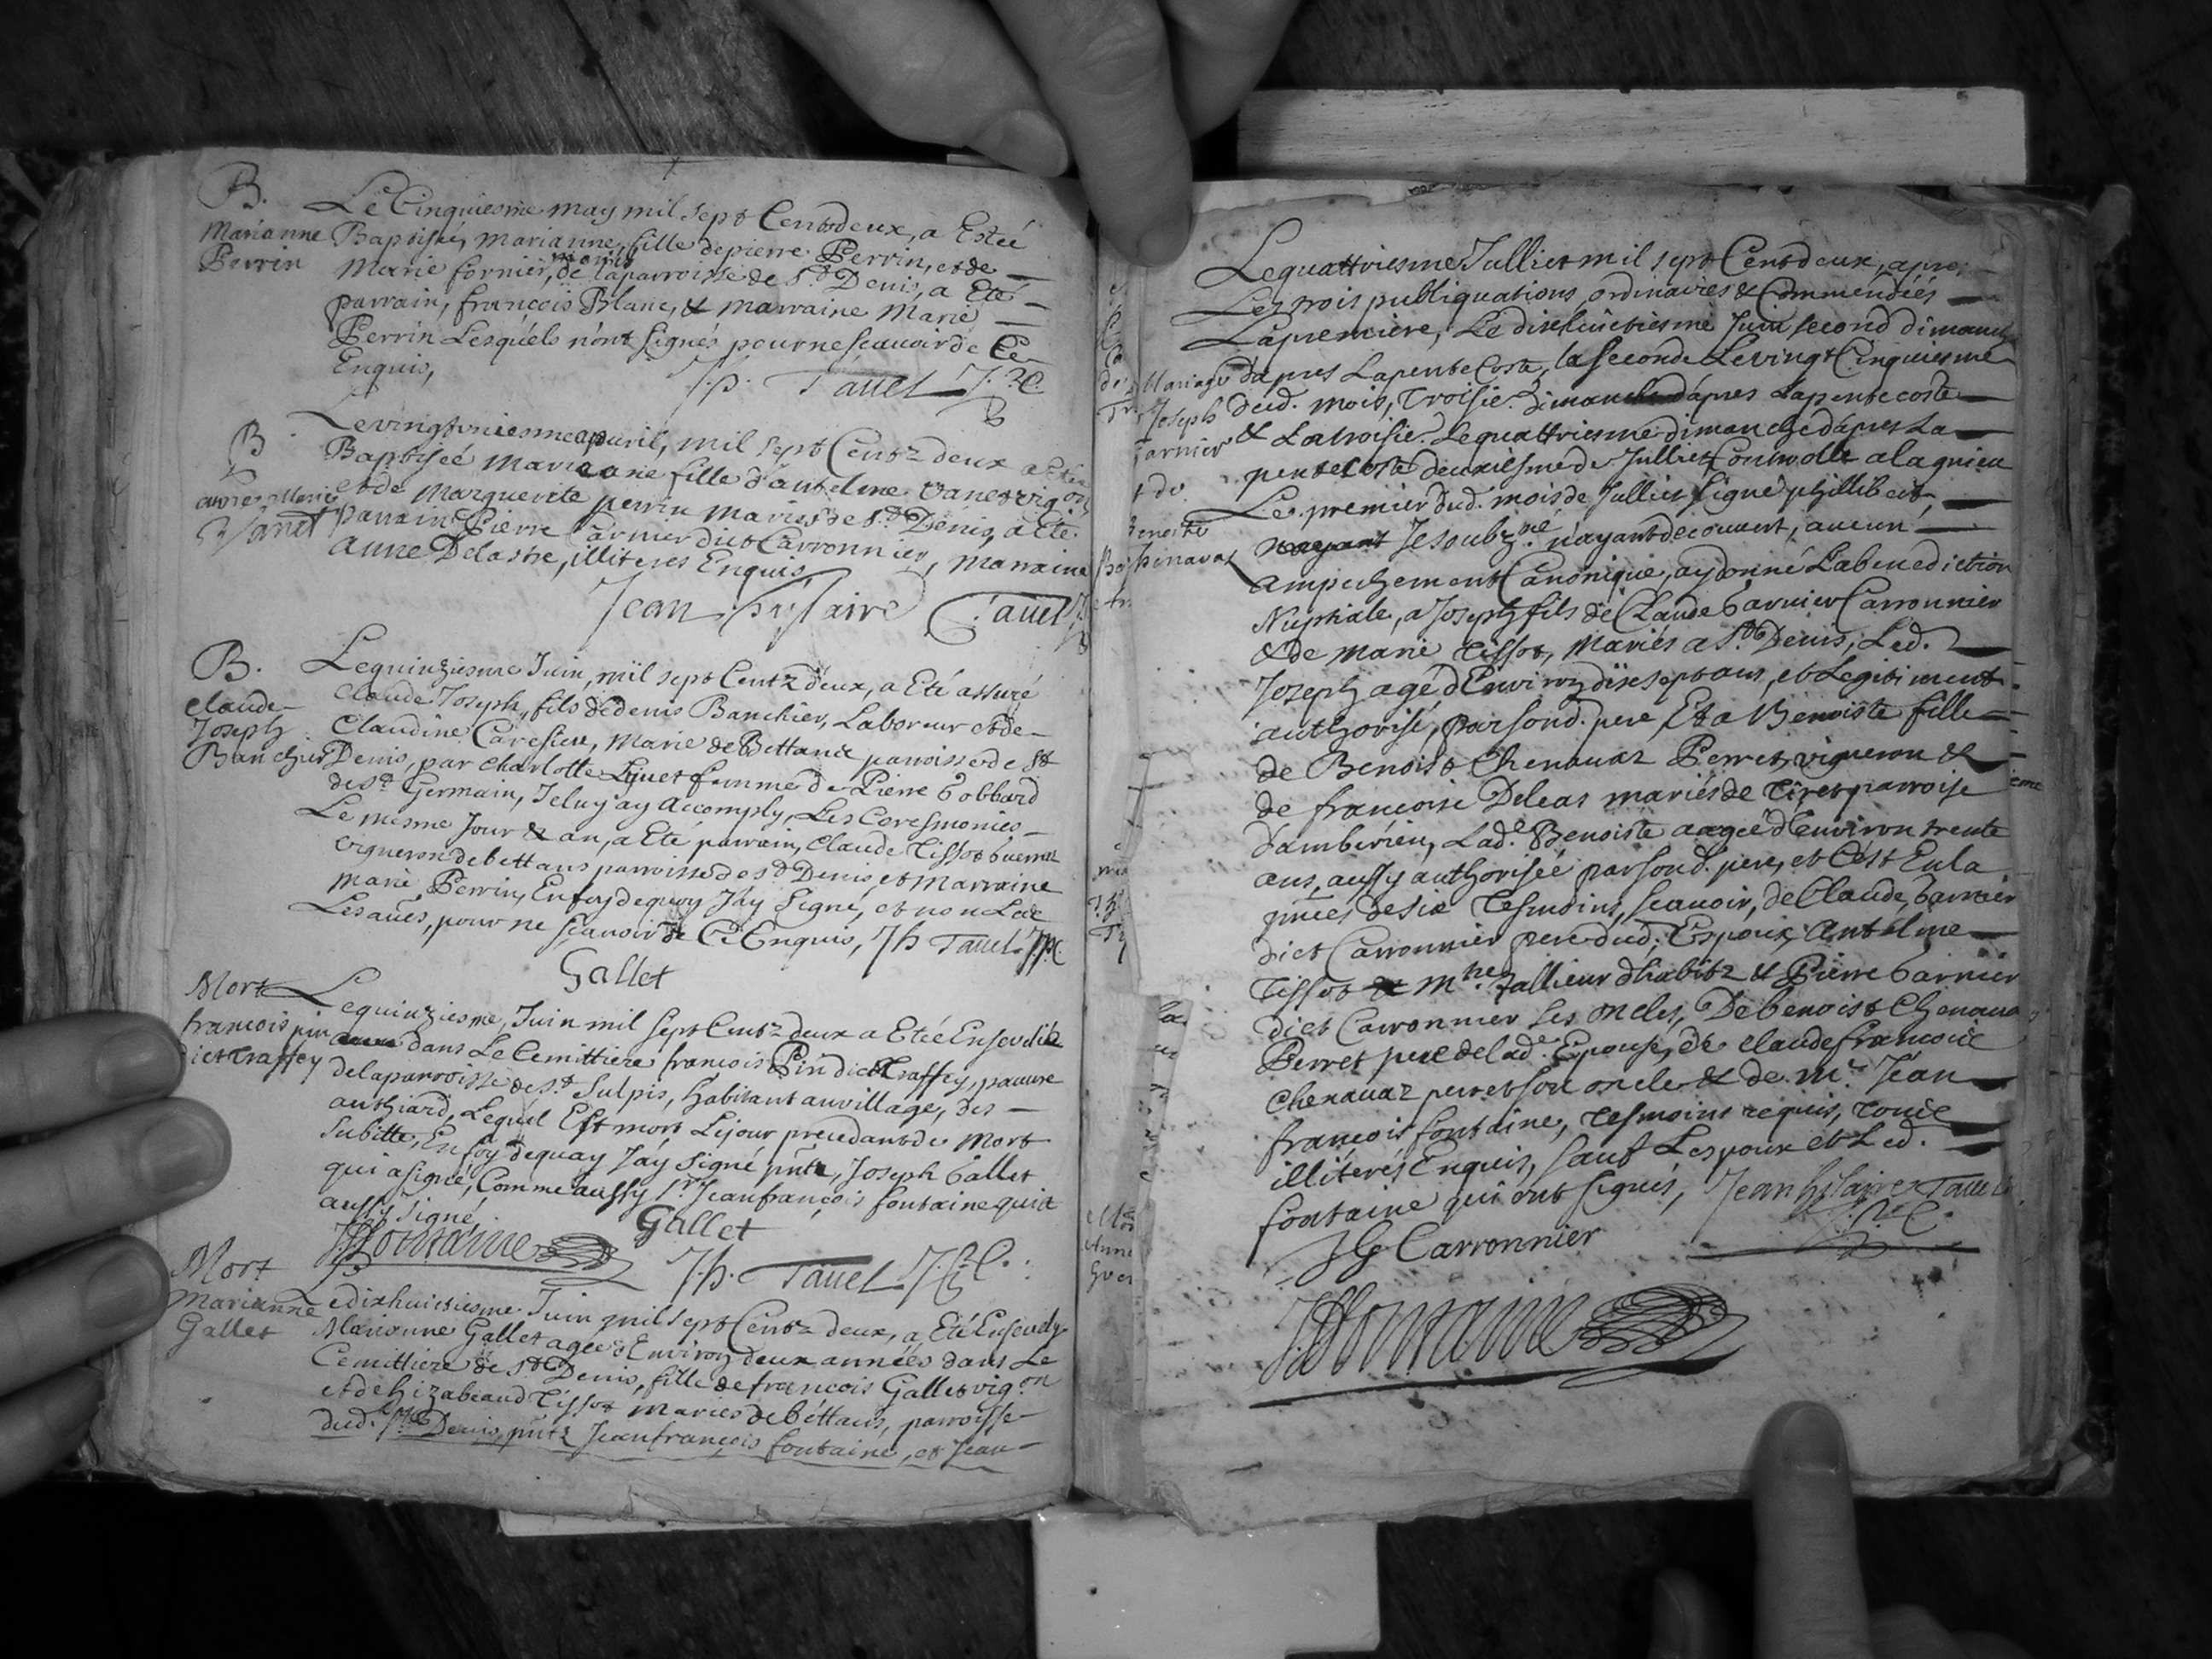 B.
Marianne
Perrin
Le Cinquiesme may mil sept Centdeux, a Esteé
Baptiseé, Marianne, fille de pierre Perrin, et de
Marie fornier, mariés de la parroisse de St Denis, a Eté
parrain, françois Blanc, & marraine Marie
Perrin Lesquels n'ont signés pour ne scauoir de Ce
Enquis,
J.h. Tauel
B
Vanet
Le vingt uniesme apuril, mil sept Centz deux a Este
Baptiseé Marieane fille d'antelme Vanet vigon
et de Marguerite perrin mariés de St Denis, a Ete
parrain Pierre Garnier dict Carronnier, marraine
anne Delastre, illiteres Enquis
Jean hylaire Tauel
B.
claude
Joseph
Banchier
Le quinziesme Juin, mil sept Centz deux, a Eté assuré
Claude Joseph, fils de denis Banchier, Laboreur et de
Claudine Caresieu, Marié de Bettand parroisse de St
Denis, par charlotte Lyuet femme de Pierre Gobbard
de St Germain, Je luy ay accomply, Les Ceresmonies
Le mesme Jour & an, a Eté parrain, Claude Tissot
vigneron de bettans parroisse de St Denis et Marraine
Marie Perrin, En foy de quoy J'ay signé, et non Les
Lesdites, pour ne scauoir de Ce Enquis, Jh Tauel
Gallet
Mort
francois pin
dict traffey
Le quinziesme, Juin mil sept Centz deux a Eté Enseuelie
dans Le Cemittiere francois Pin dict Traffey, pauure
de la parroisse de St Sulpis, habitant au village, des
authiard, Lequel Est mort Le jour precedant de Mort
subitte, En foy de quay J'ay signé pnte, Joseph Gallet
qui a signé, Comme aussy Sr Jean françois fontaine qui a
aussy signé
Gallet
J fontaine
J.h. Tauel
Mort
Marianne
Gallet
Le dixhuitiesme Juin mil sept Centz deux, a Eté Enseuely
Marianne Gallet ageé d'Environ deux annéés dans Le
Cemittiere de St Denis, fille de francois Gallet vigon
et de hizabeaud Tissot mariés de béttans, parroisse
dud. St Denis, pntz Jean françois fontaine, et Jean
Le quattriesme Julliet mil sept Cent deux, apres
Les trois publiquations, ordinaires & Commendéés
La premiere, Le dixhuictiesme Juin second dimanche
d'apres La pentecoste, la seconde Le vingt Cinquiesme
dud. mois, Troisie. dimanche d'apres La pentecoste
& La troisie. Le quattriesme dimanche d'apres La
pentecoste deuxiesme de Julliet Controlle a lagnieu
Le premier dud. mois de Julliet signé phillibert
Mariage
Joseph
Garnier
et de
Benoiste
Chenavaz
Je soubzné n'ayant decouuert, aucun
ampechement Canonique, ay donné La benediction
Nuptiale, a Joseph fils de Claude Garnier Carronnier
& de marie Tissot, Mariés a St Denis, Led.
Joseph agé d'Environ dix sept ans, et Legitiment
authorisé, par sond. pere Et a Benoiste fille
de Benoist Chenauaz Perret, vigneron &
de francoise Deleas mariés de Tiret parroise
d'amberieu, Lade Benoiste aageé d'enuiron trente
ans, aussy authorisée par sond. pere, et C'est En la
pnces de six Tesmoins, scauoir, de Claude Garnier
dict Carronnier pere dud. Espoux, antelme
Tissot Mtre tallieur d'habitz & Pierre Garnier
dict Carronnier ses oncles, De benoist Chenauaz
Perret pere de lade Epouse, de claude francois
chenauaz perret son oncle & de Mr Jean
françois fontaine, Tesmoins requis, Tous
illiterés Enquis, sauf L'espoux et Led.
fontaine qui ont signés, Jean hylaire Tauel
JG Carronnier
J fontaine